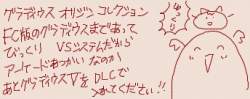 グラディウス オリジン コレクション
FC版のグラディウスまであって
びっくり VSシステムだから
アーケードあつかいなのか
あとグラディウスVを DLCで
つかてください!!
ゆっくり